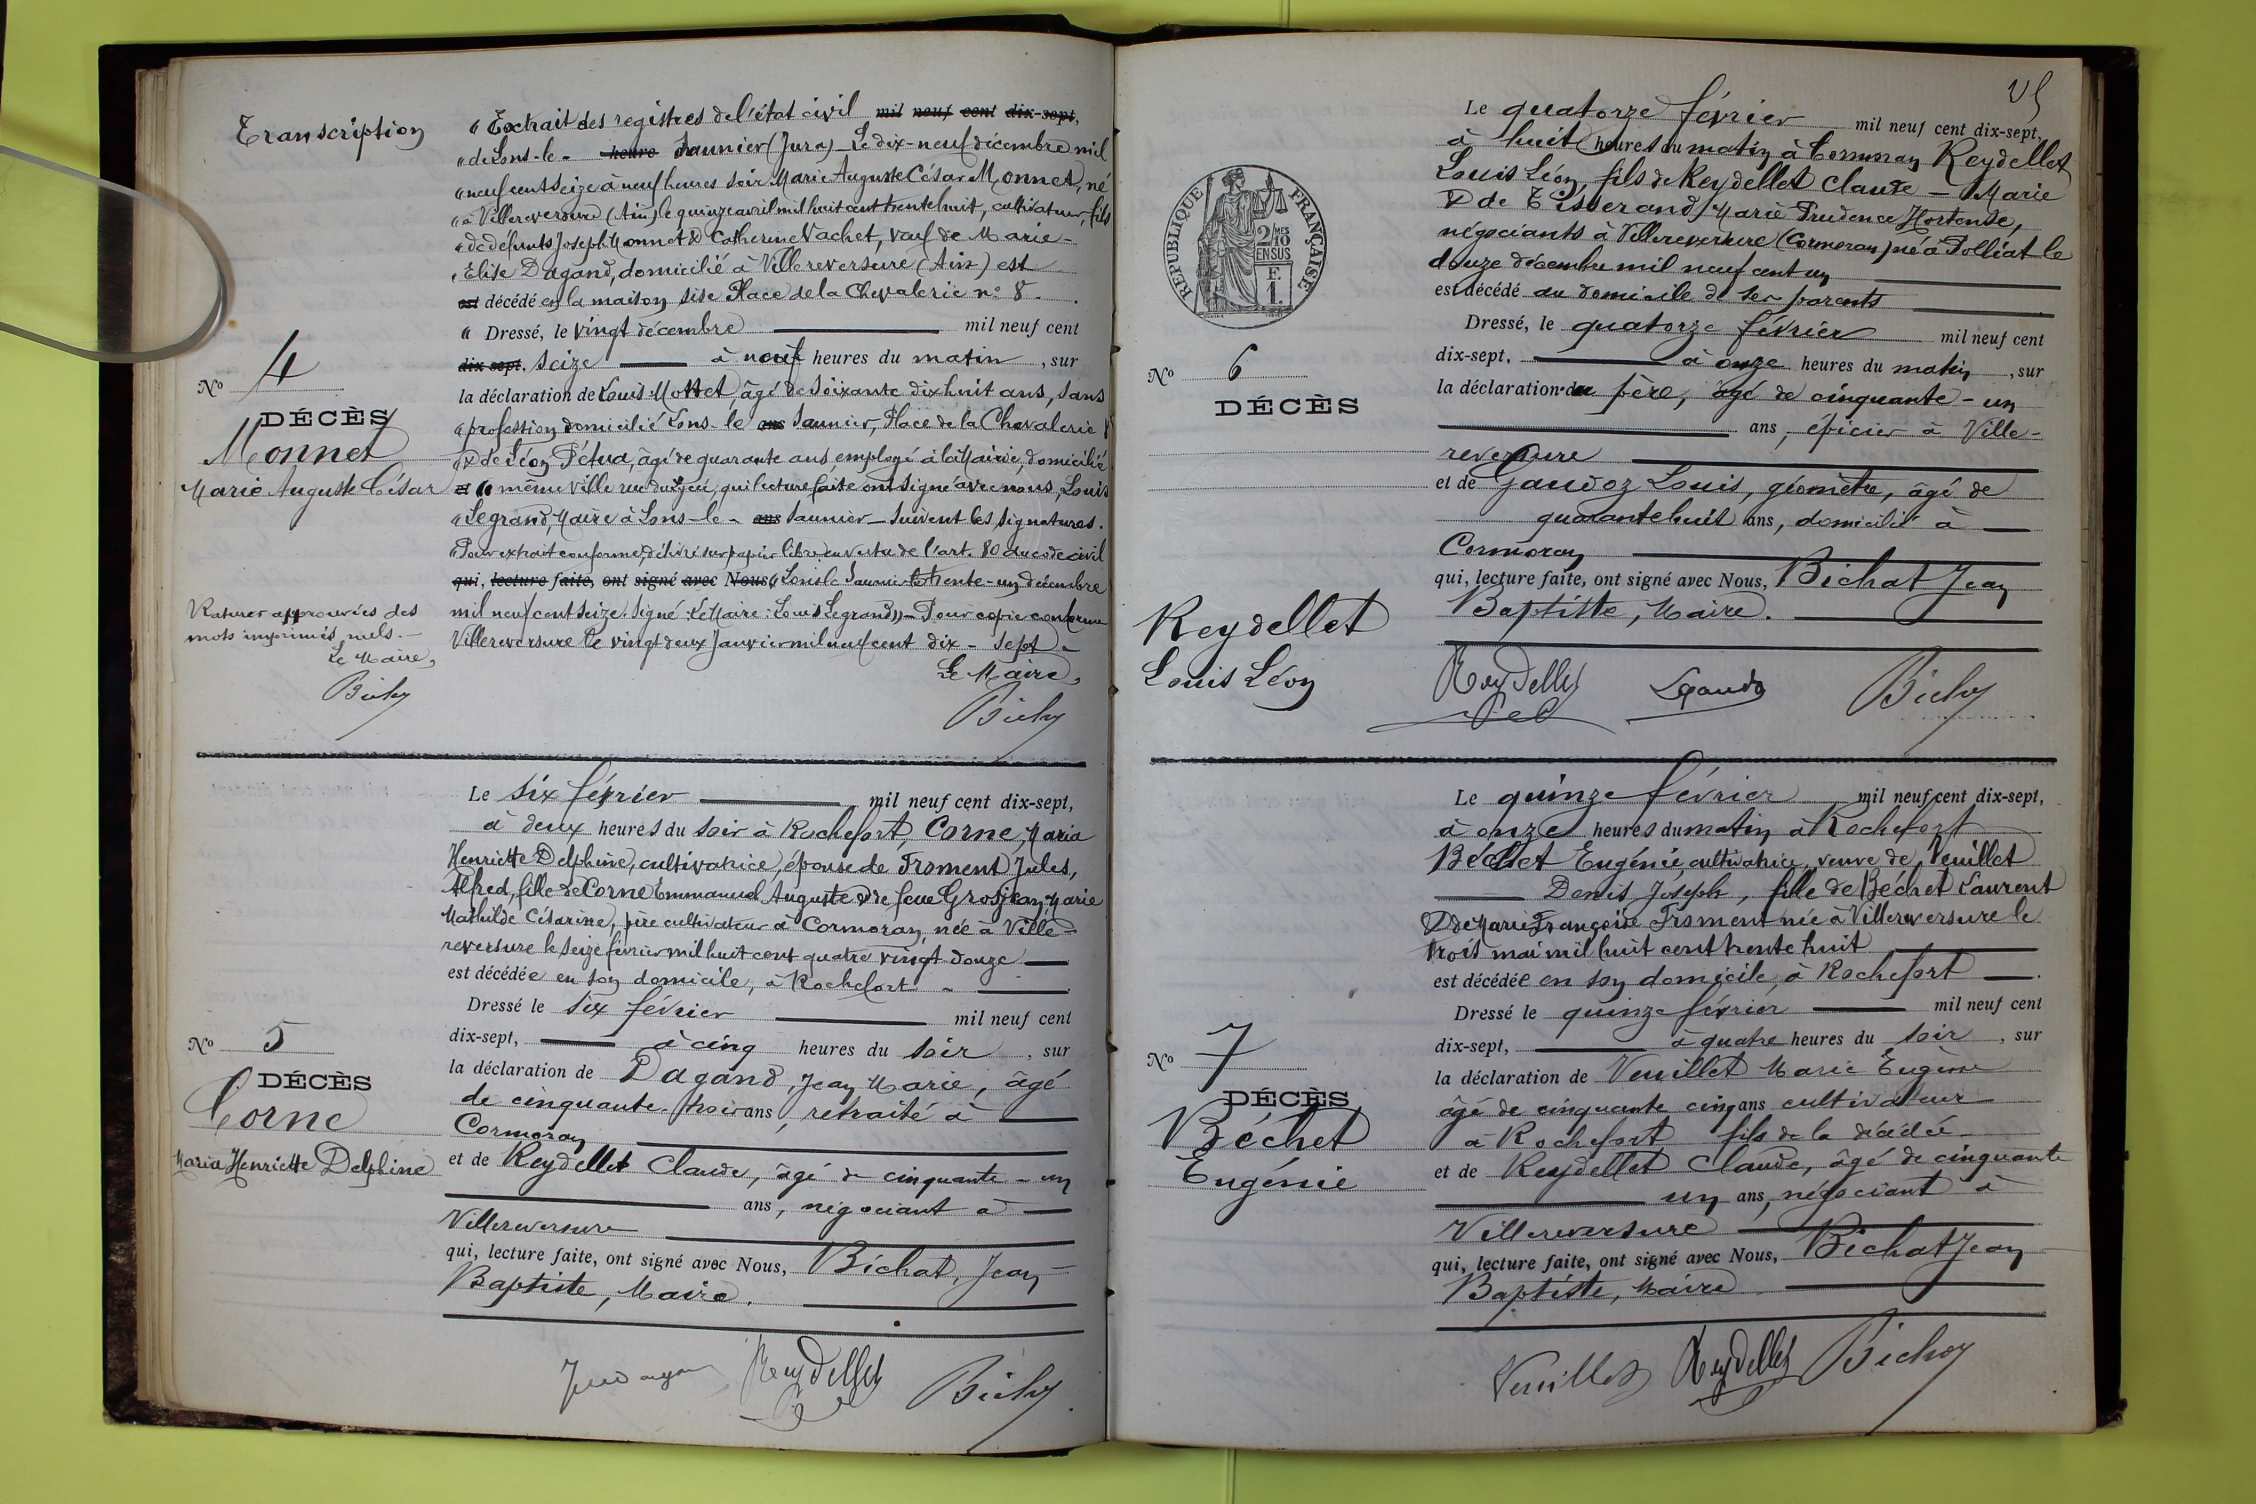 Transcription
« Extrait des registres de l'état civil mil neuf cent dix-sept,
« de Lons-le- heure Saunier (Jura) – Le dix-neuf décembre mil
« neuf cent seize à neuf heures soir Marie Auguste César Monnet, né
« à Villereversure (Ain) le quinze avril mil huit cent trente huit, cultivateur, fils
« de défunts Joseph Monnet & Catherine Vachet, veuf de Marie-
« Elise Dagand, domicilié à Villereversure (Ain) est
est décédé en la maison sise Place de la Chevalerie n° 8.
« Dressé, le vingt décembre mil neuf cent
dix-sept, seize à neuf heures du matin, sur
la déclaration de Louis Mottet, âgé de soixante dix huit ans, sans
« profession domicilié Lons-le ans Saunier, Place de la Chevalerie 8
« & de Léon Pétua, âgé de quarante ans, employé à la Mairie, domicilié
« même ville rue du, qui lecture faite ont signé avec nous, Louis
« Legrand, Maire à Lons-le- ans Saunier – Suivent les signatures.
« Pour extrait conforme, délivré sur papier libre en vertu de l'art. 80 du code civil
qui, lecture faite, ont signé avec Nous, « Lons le Saunier le trente-un décembre
mil neuf cent seize. Signé : Le Maire : Louis Legrand » – Pour copie conforme
Villereversure le vingt deux Janvier mil neuf cent dix-sept –
Le Maire,
Bichat
N° 4
DÉCÈS
Monnet
Marie Auguste César
Ratures approuvées des
mots imprimés nuls. –
Le Maire,
Bichat
Le six février mil neuf cent dix-sept,
à deux heures du soir à Rochefort, Corne, Maria
Henriette Delphine, cultivatrice, épouse de Froment Jules,
Alfred, fille de Corne Emmanuel Auguste & de feue Grosjean, Marie
Mathilde Césarine, père cultivateur à Cormoran, née à Ville-
reversure le seize février mil huit cent quatre vingt douze
est décédée en son domicile, à Rochefort -
Dressé le six février mil neuf cent
dix-sept, à cinq heures du soir, sur
la déclaration de Dagand, Jean Marie, âgé
de cinquante-trois ans, retraité à
Cormoran
et de Reydellet Claude, âgé de cinquante-un
ans, négociant à
Villereversure
qui, lecture faite, ont signé avec Nous, Bichat, Jean-
Baptiste, Maire.
Reydellet Bichat
N° 5
DÉCÈS
Corne
Maria Henriette Delphine
RÉPUBLIQUE FRANÇAISE
2/10 MES
EN SUS
F.
1.
Le quatorze février mil neuf cent dix-sept,
à huit heures du matin à Cormoran Reydellet
Louis Léon, fils de Reydellet Claude – Marie
& de Tisserand, Marie Prudence Hortense,
négociants à Villereversure (Cormoran) né à Polliat le
douze décembre mil neuf cent un
est décédé au domicile de ses parents
Dressé, le quatorze février mil neuf cent
dix-sept, à onze heures du matin, sur
la déclaration du père, âgé de cinquante-un
ans, épicier à Ville-
reversure
et de Gaudoz Louis, géomètre, âgé de
quarante huit ans, domicilié à
Cormoran
qui, lecture faite, ont signé avec Nous, Bichat Jean
Baptiste, Maire.
Reydellet LGaudoz Bichat
N° 6
DÉCÈS
Reydellet
Louis Léon
Le quinze février mil neuf cent dix-sept,
à onze heures du matin à Rochefort
Béchet Eugénie, cultivatrice, veuve de Veuillet
Denis Joseph, fille de Béchet Laurent
& de Marie Françoise Froment née à Villereversure le
trois mai mil huit cent trente huit
est décédée en son domicile, à Rochefort
Dressé le quinze février mil neuf cent
dix-sept, à quatre heures du soir, sur
la déclaration de Veuillet Marie Eugène
âgé de cinquante cinq ans cultivateur
à Rochefort fils de la décédée
et de Reydellet Claude, âgé de cinquante
un ans, négociant à
Villereversure
qui, lecture faite, ont signé avec Nous, Bichat Jean
Baptiste, Maire
Veuillet Reydellet Bichat
N° 7
DÉCÈS
Béchet
Eugénie